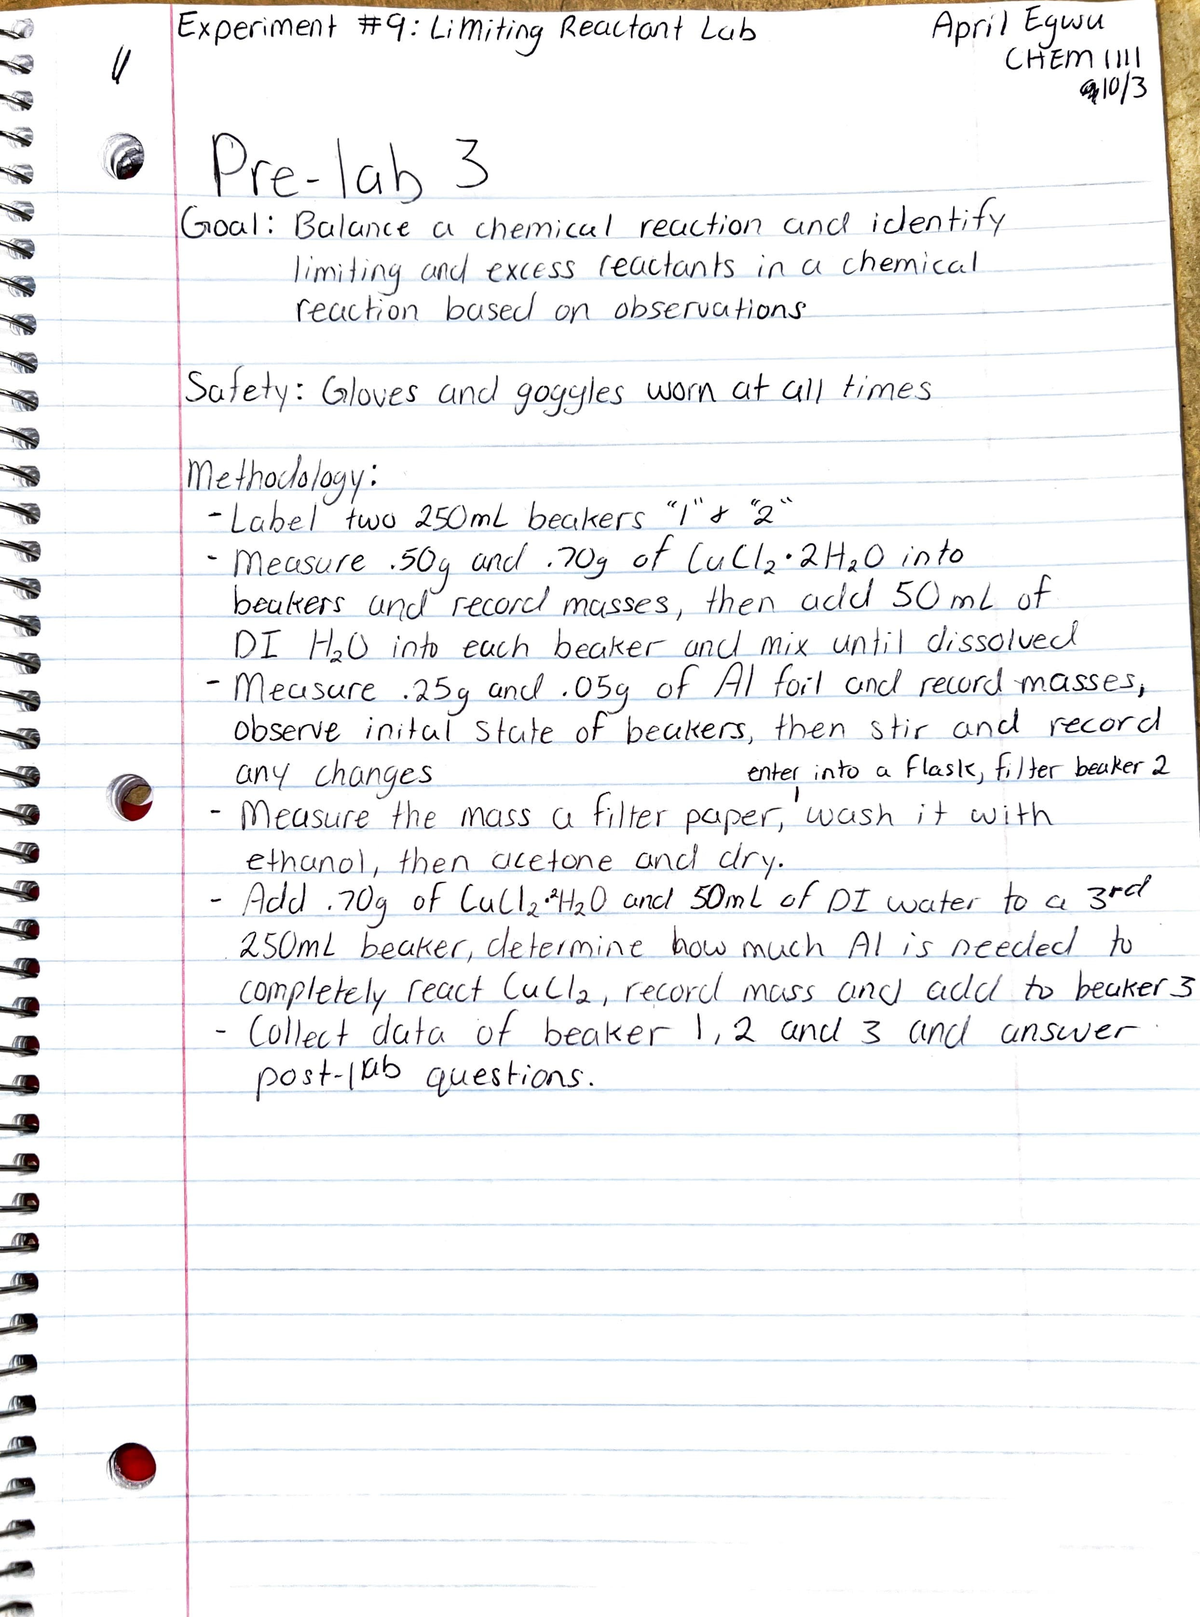 Experiment #9: Limiting Reactant Lab
April Egwu
CHEM 1111
10/3
Pre-lab 3
Goal: Balance a chemical reaction and identify
limiting and excess reactants in a chemical
reaction based on observations
Safety: Gloves and goggles worn at all times
Methodology:
- Label two 250mL beakers "1" & "2"
- Measure .50g and .70g of CuCl₂·2H₂O into
beakers and record masses, then add 50mL of
DI H₂O into each beaker and mix until dissolved
- Measure .25g and .05g of Al foil and record masses,
observe inital state of beakers, then stir and record
any changes
enter into a flask, filter beaker 2
- Measure the mass a filter paper, wash it with
ethanol, then acetone and dry.
- Add .70g of CuCl₂·²H₂O and 50mL of DI water to a 3rd
250mL beaker, determine how much Al is needed to
completely react CuCl₂, record mass and add to beaker 3
- Collect data of beaker 1, 2 and 3 and answer
post-lab questions.